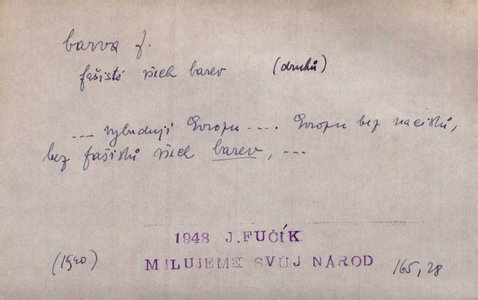 barva f.
fašisté všech barev (druhů)
--- vybudují Evropu ---. Evropu bez nacistů,
bez fašistů všech barev, ---
1948 J.FUČÍK
(1940) MILUJEME SVŮJ NÁROD 165,28